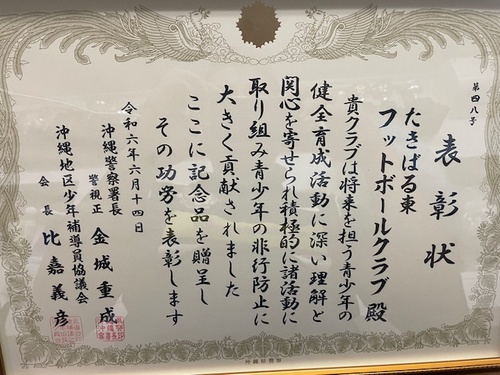 第四八号
表彰状
たきばる東
フットボールクラブ殿
貴クラブは将来を担う青少年の
健全育成活動に深い理解と
関心を寄せられ積極的に諸活動に
取り組み青少年の非行防止に
大きく貢献されました
ここに記念品を贈呈し
その功労を表彰します
令和六年六月十四日
沖縄警察署長
警視正 金城重成
沖縄地区少年補導員協議会
会長 比嘉義彦